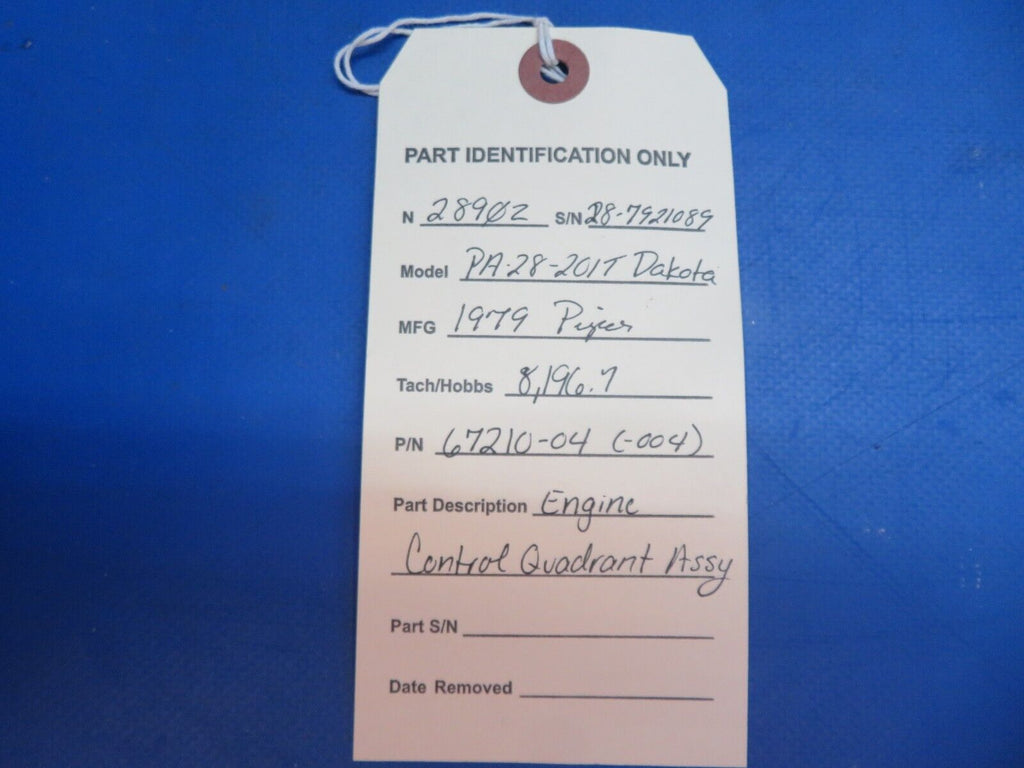 PART IDENTIFICATION ONLY
N 289Ø2 S/N 28-7921089
Model PA-28-201T Dakota
MFG 1979 Piper
Tach/Hobbs 8,196.7
P/N 67210-04 (-004)
Part Description Engine
Control Quadrant Assy
Part S/N
Date Removed